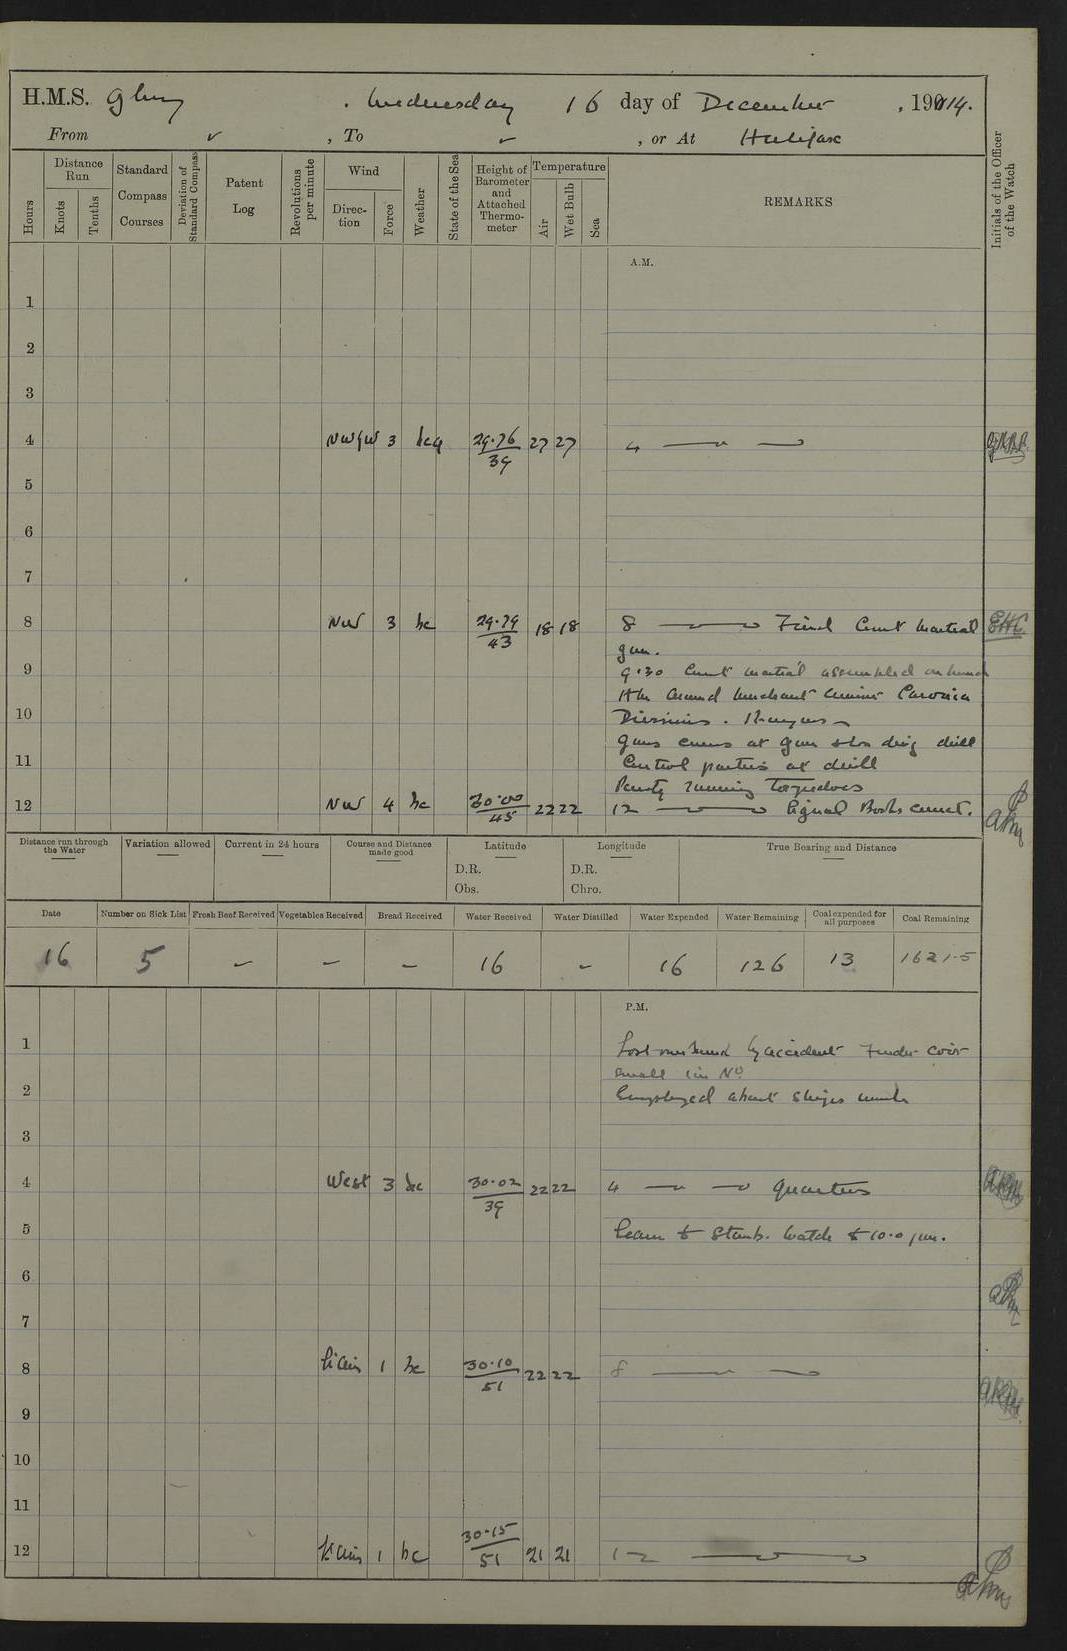 H.M.S. Glory . Wednesday 16 day of December , 1914.
From ✓ , To ✓ , or At Halifax
Hours
Distance Run
Knots
Tenths
Standard Compass Courses
Deviation of Standard Compass
Patent Log
Revolutions per minute
Wind
Direction
Force
Weather
State of the Sea
Height of Barometer and Attached Thermometer
Temperature
Air
Wet Bulb
Sea
REMARKS
Initials of the Officer of the Watch
A.M.
1
2
3
4 NWyW 3 bcq 29.76/39 27 27 4
5
6
7
8 NW 3 bc 29.79/43 18 18 8 Fired Court Martial
gun.
9 9.30 Court martial assembled on board
H.M. Armed Merchant Cruiser Caronia
10 Divisions. Prayers
Guns crews at gun drill
11 Control parties at drill
Party running Torpedoes
12 NW 4 bc 30.00/45 22 22 12 Signal Books correct.
Distance run through the Water
Variation allowed
Current in 24 hours
Course and Distance made good
Latitude
D.R.
Obs.
Longitude
D.R.
Chro.
True Bearing and Distance
Date Number on Sick List Fresh Beef Received Vegetables Received Bread Received Water Received Water Distilled Water Expended Water Remaining Coal expended for all purposes Coal Remaining
16 5 – – – 16 – 16 126 13 1621.5
P.M.
1 Lost overboard by accident Fender coir
small in No
2 Employed about ships work
3
4 West 3 bc 30.02/39 22 22 4 Quarters
5 watch to 10.0 pm.
6
7
8 1 bc 30.10/51 22 22 8
9
10
11
12 1 bc 30.15/51 21 21 12